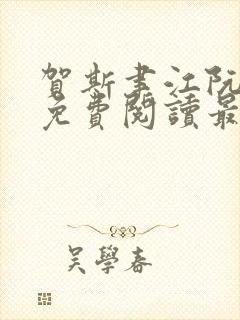 賀斯書江阮
免費閱讀最
吳學春